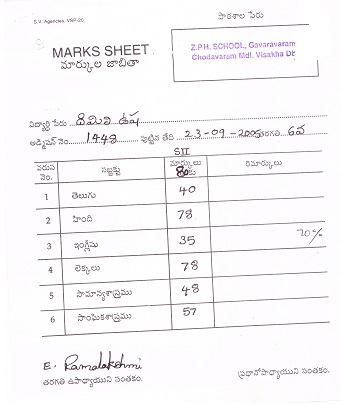 S.V. Agencies, VSP-20.
పాఠశాల పేరు
MARKS SHEET
మార్కుల జాబితా
Z.P.H. SCHOOL, Gavaravaram
Chodavaram Mdl. Visakha Dt
విద్యార్థి పేరు దిమిలి ఉష
అడ్మిషన్ నెం. 1448 పుట్టిన తేది 23-09-2005 తరగతి 6వ
SII
వరుస నెం. సబ్జక్టు మార్కులు 80కు రిమార్కులు
1 తెలుగు 40
2 హింది 78
3 ఇంగ్లీషు 35 70%
4 లెక్కలు 78
5 సామాన్యశాస్త్రము 48
6 సాంఘికశాస్త్రము 57
E. Ramalakshmi
తరగతి ఉపాధ్యాయుని సంతకం. ప్రధానోపాధ్యాయుని సంతకం.